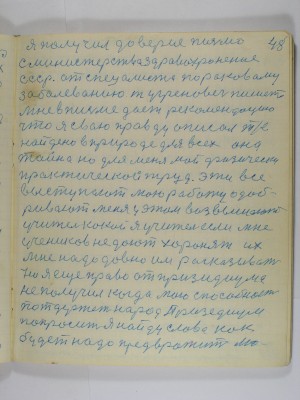 48
я получил доверие писмо
с министерства здравохронение
ссср. от специалиста по раковому
заболеванию т угренович пишет
мне в писме дает рекомендацию
что я сваю правду описал т/е
найдено в природе для всех она
тайна но для меня мой физически
практический труд. Эти все
выступают мою работу одоб-
ривают меня у этом возвеличают
учител какой я учител если мне
учеников не дают хоронят их
мне надо давно им расказиват
но я еще право от призидиума
не получил когда мою способност
потдержет народ Призедиум
попросит я найду слова как
будет надо предвражит мо-